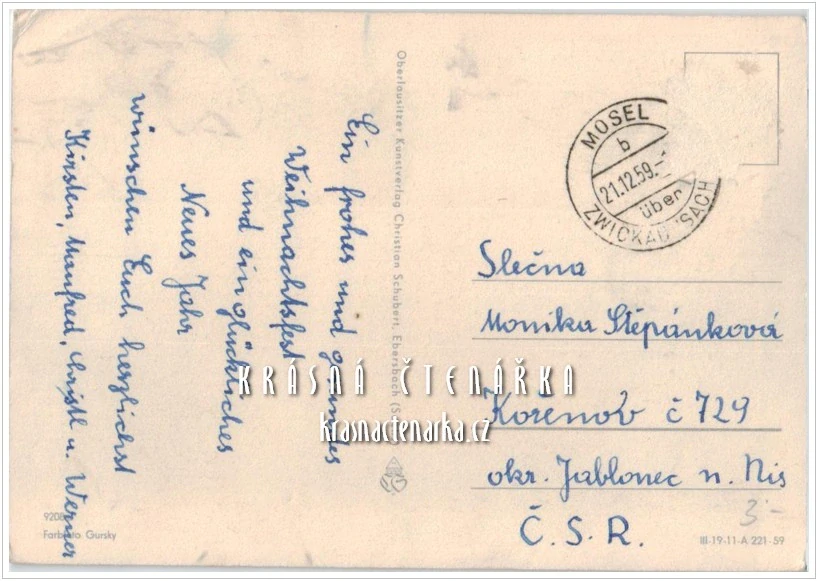 Ein frohes und gesundes
Weihnachtsfest
und ein glückliches
Neues Jahr
wünschen Euch herzlichst
Kirsten, Manfred, Christl u. Werner
Oberlausitzer Kunstverlag Christian Schubert, Ebersbach
MOSEL
b
21.12.59.-
über
ZWICKAU SACH
Slečna
Monika Štěpánková
Kořenov č 729
okr. Jablonec n. Nis
Č. S. R.
3'-
KRÁSNÁ ČTENÁŘKA
krasnactenarka.cz
Gursky
III-19-11-A 221-59